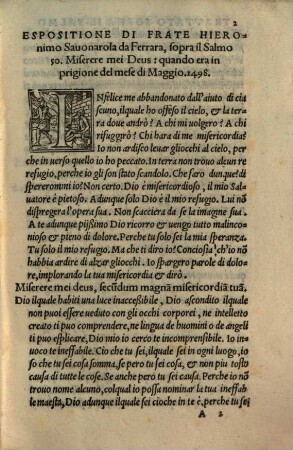 2
ESPOSITIONE DI FRATE HIERO
nimo Sauonarola da Ferrara, sopra il Salmo
50. Miserere mei Deus: quando era in
prigione del mese di Maggio. 1498.
INfelice me abbandonato dall'aiuto di cia
scuno, ilquale ho offeso il cielo, & la ter
ra doue andrò? A chi miuolgero? A chi
rifuggirò? Chi hara di me misericordia?
Io non ardisco leuar gliocchi al cielo, per
che in uerso quello io ho peccato. In terra non trouo alcun re
refugio, perche io gli son stato scandolo. Che faro dunque? di
spereromm io? Non certo. Dio è misericordioso, il mio Sal
uatore è pietoso. Adunque solo Dio è il mio refugio. Lui nõ
dispregera l'opera sua. Non scacciera da se la imagine sua.
A te adunque pijssimo Dio ricorro & uengo tutto malinco
nioso & pieno di dolore. Perche tu solo sei la mia speranza.
Tu solo il mio refugio. Ma che ti diro io? Conciosia ch'io nõ
habbia ardire di alzar gliocchi. Io spargero parole di dolo
re, implorando la tua misericordia & dirò.
Miserere mei deus, secũdum magnã misericordiã tuã.
Dio ilquale habiti una luce inaccessibile, Dio ascondito ilquale
non puoi essere ueduto con gli occhi corporei, ne intelletto
creato ti puo comprendere, ne lingua de huomini o de angeli
ti puo esplicare, Dio mio io cerco te incomprensibile. Io in
uoco te ineffabile. Cio che tu sei, ilquale sei in ogni luogo, io
so che tu sei cosa somma, se pero tu sei cosa, & non piu tosto
causa di tutte le cose. Se anchora pero tu sei causa. Perche io nõ
trouo nome alcuno, colqual io possa nominar la tua ineffab
le maestà, Dio adunque ilquale sei cioche in te è, perche tu sei
A 2